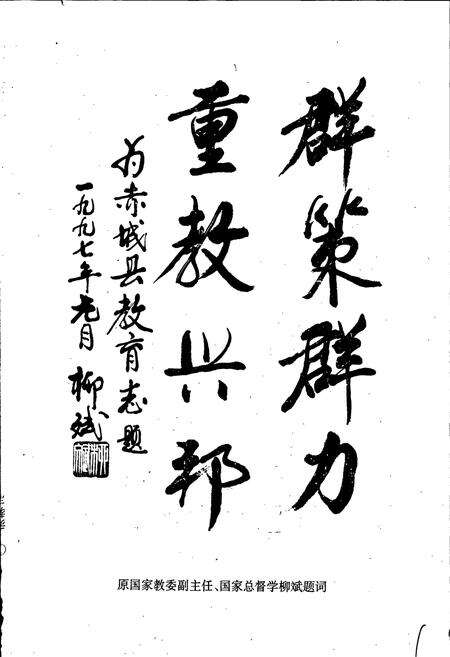 群策群力
重教兴邦
为赤城县教育志题
一九九七年元月 柳斌
原国家教委副主任、国家总督学柳斌题词